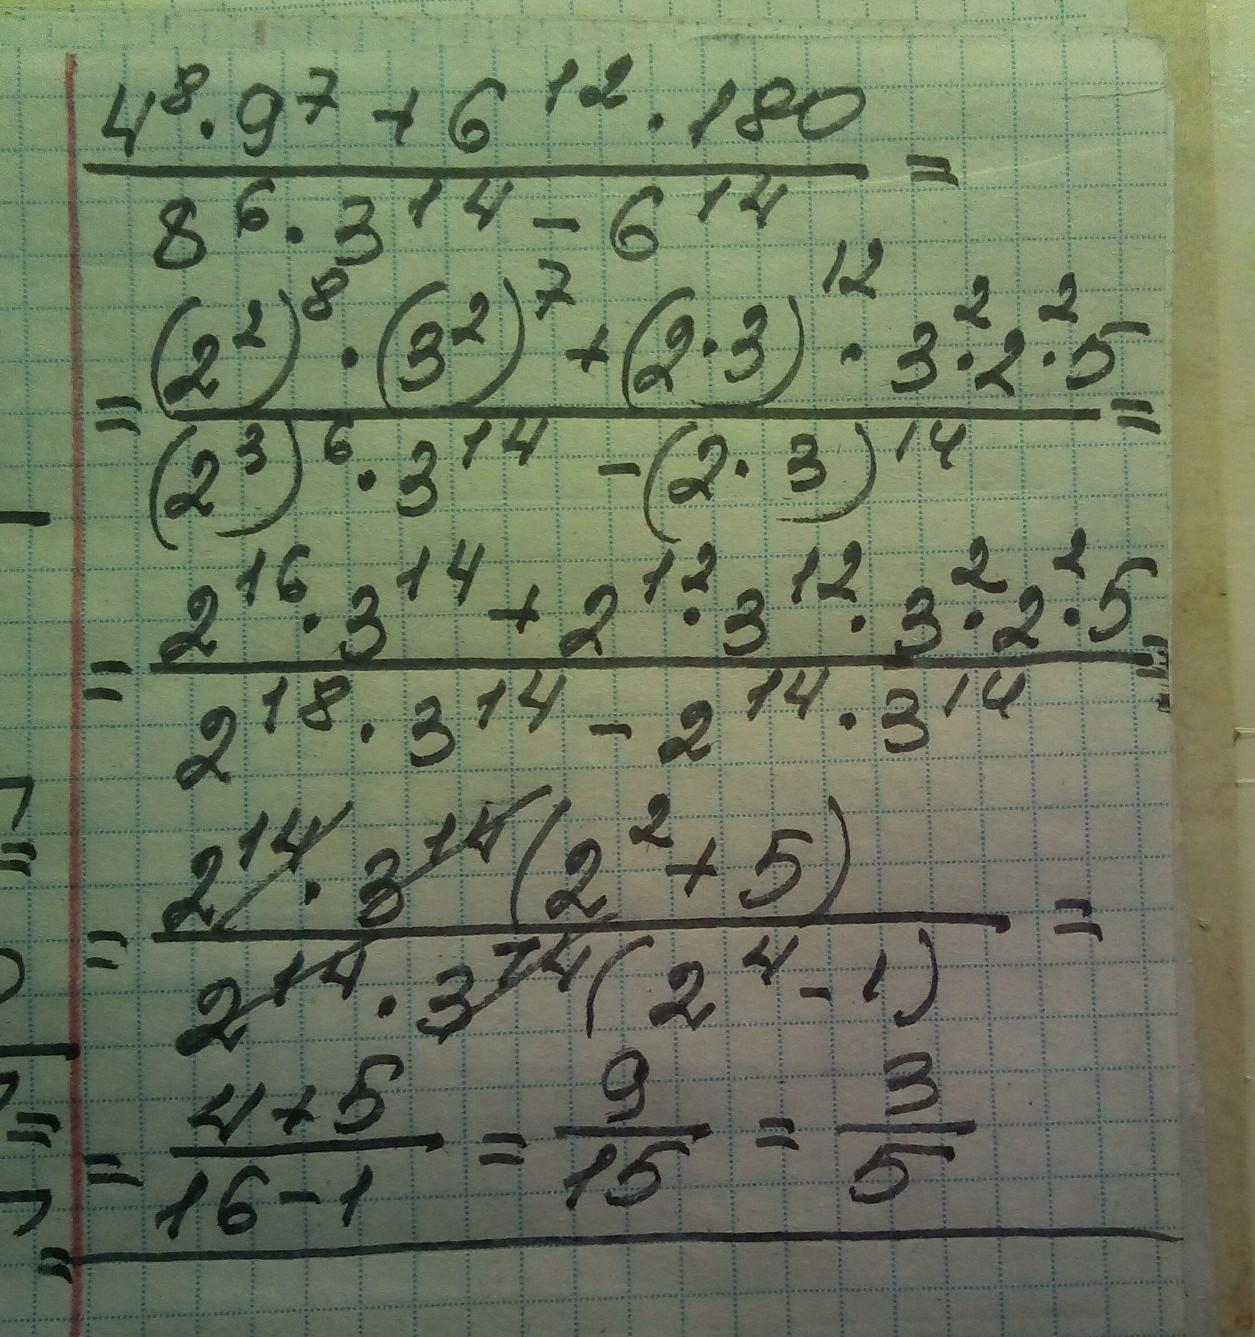 4⁸·9⁷+6¹²·180
8⁶·3¹⁴-6¹⁴ =
=(2²)⁸·(3²)⁷+(2·3)¹²·3²·2²·5
(2³)⁶·3¹⁴-(2·3)¹⁴ =
=2¹⁶·3¹⁴+2¹²·3¹²·3²·2²·5
2¹⁸·3¹⁴-2¹⁴·3¹⁴ =
=2¹⁴·3¹⁴(2²+5)
2¹⁴·3¹⁴(2⁴-1) =
=4+5/16-1 = 9/15 = 3/5